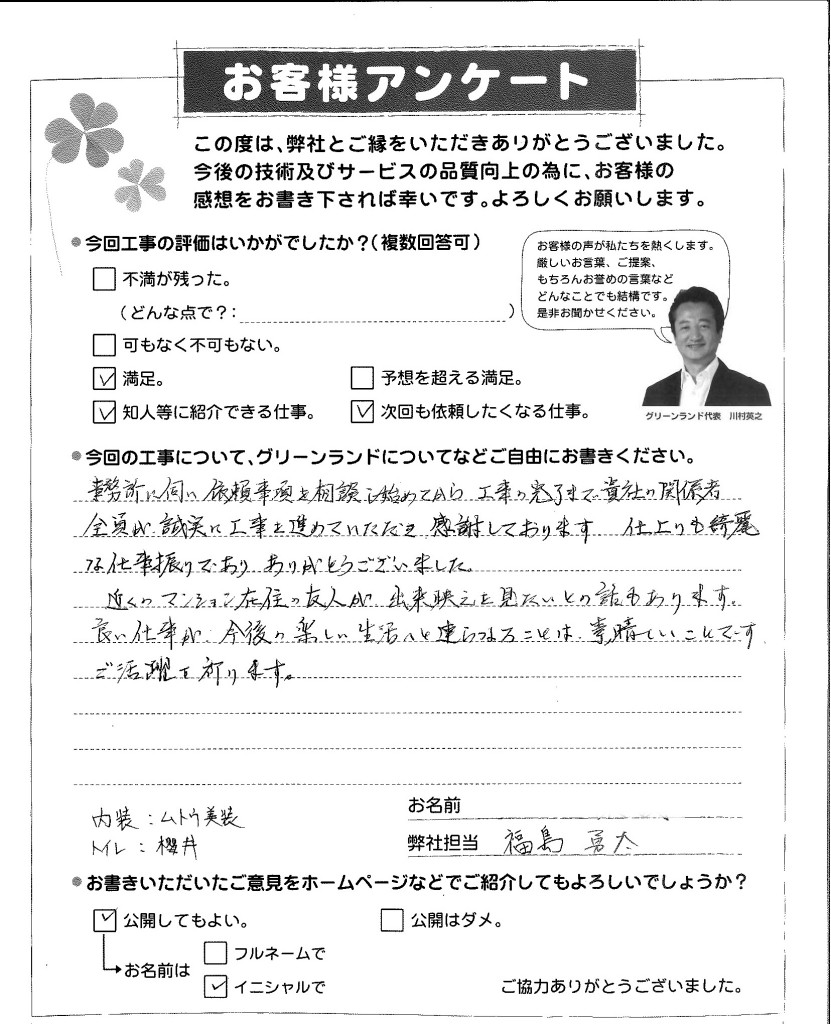 お客様アンケート
この度は、弊社とご縁をいただきありがとうございました。
今後の技術及びサービスの品質向上の為に、お客様の
感想をお書き下されば幸いです。よろしくお願いします。
今回工事の評価はいかがでしたか？（複数回答可）
不満が残った。
（どんな点で？：　）
可もなく不可もない。
満足。
予想を超える満足。
知人等に紹介できる仕事。
次回も依頼したくなる仕事。
お客様の声が私たちを熱くします。
厳しいお言葉、ご提案、
もちろんお誉めの言葉など
どんなことでも結構です。
是非お聞かせください。
グリーンランド代表　川村英之
今回の工事について、グリーンランドについてなどご自由にお書きください。
事務所に伺い依頼事項を相談し始めてから 工事の完了まで貴社の関係者
全員が 誠実に工事を進めていただき 感謝しております 仕上りも綺麗
な仕事振りであり ありがとうございました。
近くのマンション在住の友人が 出来映えを見たいとの話もあります。
良い仕事が 今後の楽しい生活へと連らなることは 素晴しいことです
ご活躍を祈ります。
内装：ムトウ美装
トイレ：櫻井
お名前
弊社担当 福島 勇太
お書きいただいたご意見をホームページなどでご紹介してもよろしいでしょうか？
公開してもよい。
公開はダメ。
お名前は
フルネームで
イニシャルで
ご協力ありがとうございました。